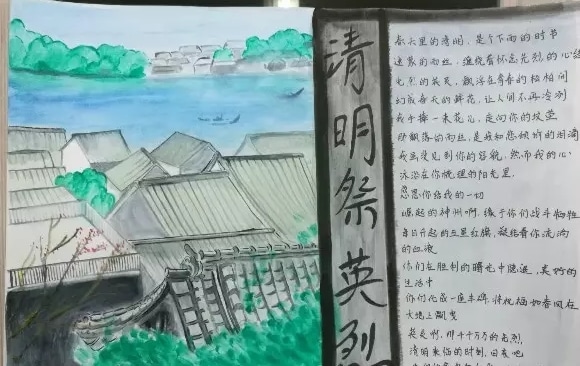 清明祭英烈
春天里的清明，是个下雨的时节
迷蒙的雨丝，缠绕着怀念先烈的心
先烈的英灵，飘浮在青青的松柏间
幻成春天的鲜花，让人间不再冷冽
我手捧一束花儿，走向你的坟茔
那飘落的雨丝，是我如您倾诉的泪滴
我虽没见到你的容貌，然而我的心
沐浴在你的阳光里
思您你给我的一切
崛起的神州啊，缘于你们战斗牺牲
每日升起的五星红旗，凝结着你流淌
的血液
你们在胜利的曙光中隐逝，美好的
生活中
你们化成一座丰碑，将祝福如春风在
大地上飘曳
英灵啊，那千千万万的先烈，
清明来临的时刻，回来吧